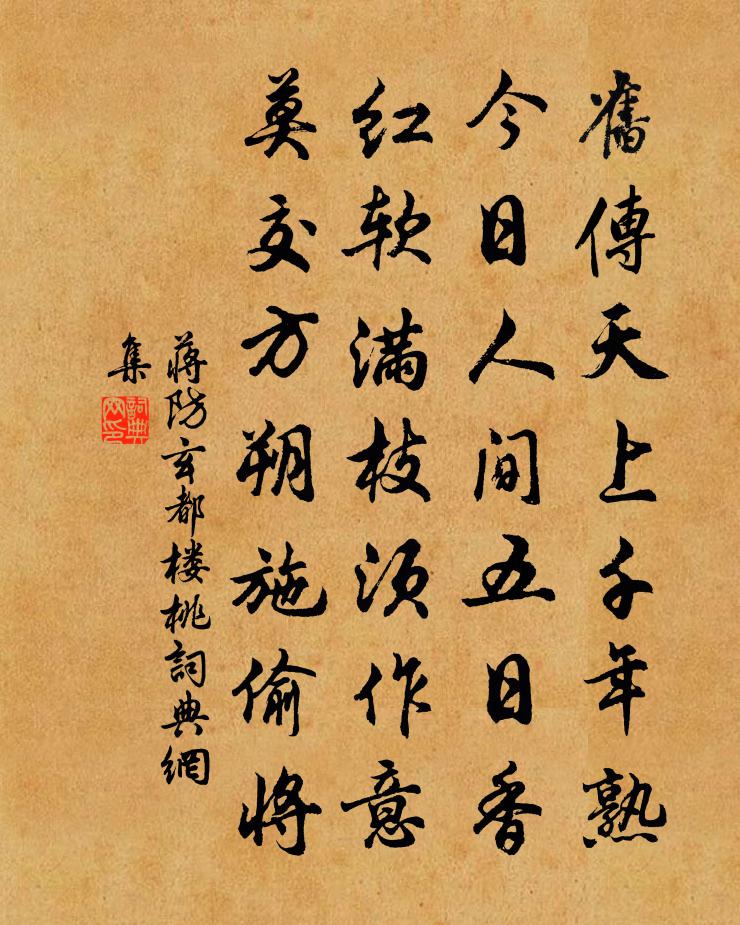 舊傳天上千年熟
今日人间五日香
红软满枝须作意
莫交方朔施偷将
蒋防玄都楼桃詞典網
集
詞典
网印